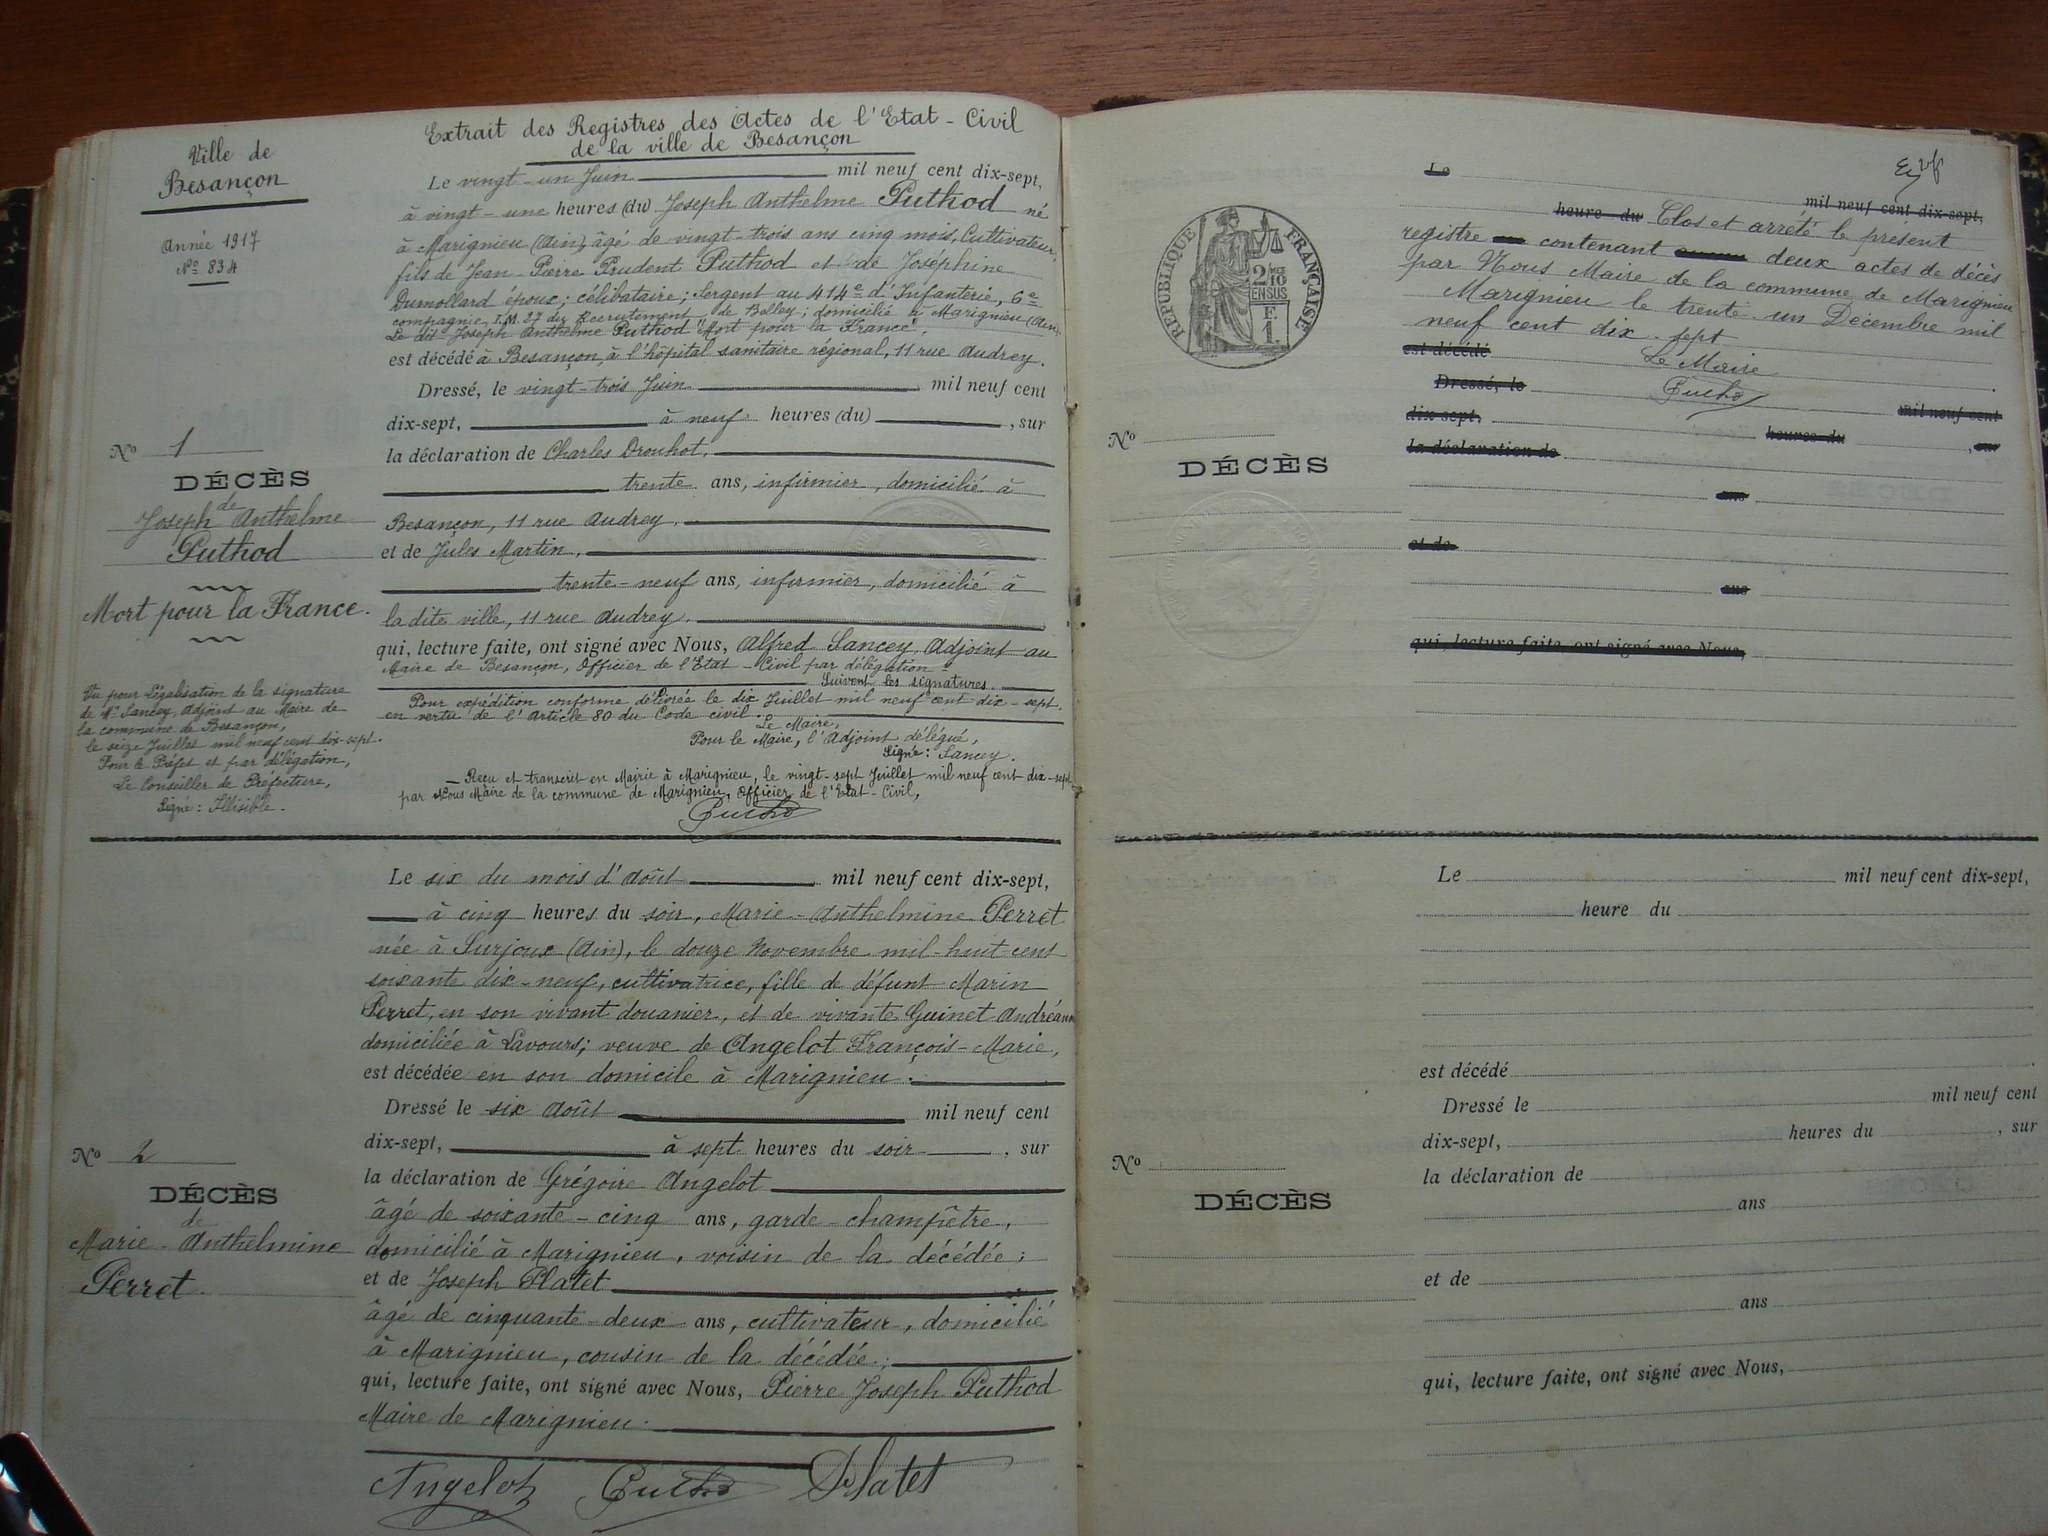 Ville de
Besançon
Année 1917
No 834
No 1
DÉCÈS
de
Joseph Anthelme
Puthod
Mort pour la France.
Vu pour Légalisation de la signature
de Mr Sancey, Adjoint au Maire de
la commune de Besançon,
le seize Juillet mil neuf cent dix-sept.
Pour le Préfet et par délégation,
Le Conseiller de Préfecture,
Signé : Illisible.
Extrait des Registres des Actes de l'Etat-Civil
de la ville de Besançon
Le vingt-un Juin mil neuf cent dix-sept,
à vingt-une heures (du) Joseph Anthelme Puthod né
à Marignieu (Ain), âgé de vingt-trois ans cinq mois, Cultivateur,
fils de Jean-Pierre Prudent Puthod et de Joséphine
Dumollard époux ; célibataire ; Sergent au 414e d'Infanterie, 6e
compagnie, I.M. 27 du Recrutement de Belley ; domicilié à Marignieu (Ain).
Le dit Joseph Anthelme Puthod "Mort pour la France",
est décédé à Besançon, à l'hôpital sanitaire régional, 11 rue Audrey.
Dressé, le vingt-trois Juin mil neuf cent
dix-sept, à neuf heures (du) , sur
la déclaration de Charles Drouhot,
trente ans, infirmier, domicilié à
Besançon, 11 rue Audrey,
et de Jules Martin,
trente-neuf ans, infirmier, domicilié à
la dite ville, 11 rue Audrey,
qui, lecture faite, ont signé avec Nous, Alfred Sancey, Adjoint au
Maire de Besançon, Officier de l'Etat-Civil par délégation.
Suivent les signatures.
Pour expédition conforme délivrée le dix Juillet mil neuf cent dix-sept.
en vertu de l'Article 80 du Code civil.
Le Maire,
Pour le Maire, l'Adjoint délégué,
Signé : Sancey.
Reçu et transcrit en Mairie à Marignieu, le vingt-sept Juillet mil neuf cent dix-sept
par Nous Maire de la commune de Marignieu, Officier de l'Etat-Civil,
Puthod
No 2
DÉCÈS
de
Marie-Anthelmine
Perret.
Le six du mois d'Août mil neuf cent dix-sept,
à cinq heures du soir, Marie-Anthelmine Perret
née à Surjoux (Ain), le douze Novembre mil-huit cent
soixante dix-neuf, cultivatrice, fille de défunt Marin
Perret, en son vivant douanier, et de vivante Guinet
domiciliée à Lavours ; veuve de Angelot François-Marie,
est décédée en son domicile à Marignieu.
Dressé le six Août mil neuf cent
dix-sept, à sept heures du soir , sur
la déclaration de Grégoire Angelot
âgé de soixante-cinq ans, garde-champêtre,
domicilié à Marignieu, voisin de la décédée ;
et de Joseph Platet
âgé de cinquante-deux ans, cultivateur, domicilié
à Marignieu, cousin de la décédée ;
qui, lecture faite, ont signé avec Nous, Pierre Joseph Puthod
Maire de Marignieu.
Angelot Puthod Platet
RÉPUBLIQUE FRANÇAISE
2/10 EN SUS
F.
1.
No
DÉCÈS
Le
mil neuf cent dix-sept,
heure du Clos et arrêté le présent
registre contenant deux actes de décès
par Nous Maire de la commune de Marignieu
Marignieu le trente-un Décembre mil
neuf cent dix-sept
est décédé Le Maire
Dressé, le Puthod mil neuf cent
dix-sept, heures du , sur
la déclaration de
ans
et de
ans
qui, lecture faite, ont signé avec Nous,
No
DÉCÈS
Le mil neuf cent dix-sept,
heure du
est décédé
Dressé le mil neuf cent
dix-sept, heures du , sur
la déclaration de
ans
et de
ans
qui, lecture faite, ont signé avec Nous,